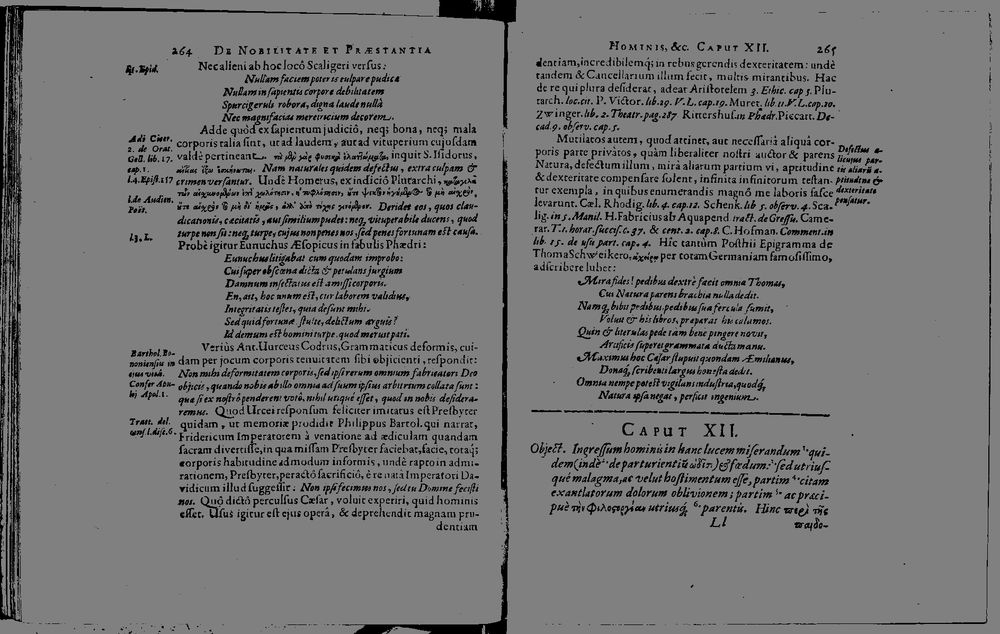 264 DE NOBILITATE ET PRÆSTANTIA
Nec alieni ab hoc locô Scaligeri versus:
Nullam faciem poteris culpare pudica
Nullam in sapientis corpore debilitatem
Spurcigeruli robora, digna laude nullâ
Nec magnifacias meretricium decorem.
Adde quòd ex sapientum judiciô, neq; bona, neq; mala
corporis talia sint, ut ad laudem, aut ad vituperium cujusdam
valdè pertineant. inquit S. Isidorus,
Nam naturales quidem defectus, extra culpam &
crimen versantur. Undè Homerus, ex indiciô Plutarchi,
Derides eos, quos clau-
dicationis, cæcitatis, aut similium pudet: neq, vituperabile ducens, quod
turpe non sit: neq, turpe, cujus non penes nos, sed penes fortunam est causa.
Probè igitur Eunuchus Æsopicus in fabulis Phædri:
Eunuchus litigabat cum quodam improbo:
Cui super obscœna dicta & petulans jurgium
Damnum insectatus est amissi corporis.
En, ait, hoc unum est, cur laborem validius,
Integritatis testes, quia desunt mihi.
Sed quid fortunæ stulte, delictum arguis?
Id demum est homini turpe, quod meruit pati.
Veriùs Ant. Uurceus Codrus, Grammaticus deformis, cui-
dam per jocum corporis tenuitatem sibi objicienti, respondit:
Non mihi deformitatem corporis, sed ipsi rerum omnium fabricatori Deo
objicis, quando nobis ab illo omnia ad suum ipsius arbitrium collata sunt:
quæ si ex nostrô penderent votô, nihil utiquè esset, quod in nobis desidera-
remus. Quod Urcei responsum feliciter imitatus est Presbyter
quidam, ut memoriæ prodidit Philippus Bartol. qui narrat,
Fridericum Imperatorem à venatione ad ædiculam quandam
sacram divertisse, in qua missam Presbyter faciebat, facie, totaq;
corporis habitudine admodum informis, unde rapto in admi-
rationem, Presbyter, peractô sacrificiô, è re natâ Imperatori Da-
vidicum illud suggessit: Non ipsi fecimus nos, sed tu Domine fecisti
nos. Quô dictô perculsus Cæsar, voluit experiri, quid hominis
esset. Usus igitur est ejus operâ, & deprehendit magnam pru-
dentiam
Adi Cicer.
2. de Orat.
Gell. lib. 17.
cap. 1.
l.4. Epist. 157
l.de Audien.
Poët.
l.3. L.
Barthol. Bo-
noniensis in
ejus vitâ.
Confer Apu-
lej Apol. 1.
HOMINIS, &c. CAPUT XII. 265
dentiam, incredibilemq; in rebus gerendis dexteritatem: undè
tandem & Cancellarium illum fecit, multis mirantibus. Hac
de re qui plura desiderat, adeat Aristotelem 3. Ethic. cap 5. Plu-
tarch. loc. cit. P. Victor. lib. 29. V. L. cap. 19. Muret. lib. 11. V. L. cap. 20.
Zwinger. lib. 2. Theatr. pag. 287 Rittershus. in Phædr. Piccart. De-
cad. 9. observ. cap. 5.
Mutilatos autem, quod attinet, aut necessariâ aliquâ cor-
poris parte privatos, quàm liberaliter nostri auctor & parens
Natura, defectum illum, mirâ aliarum partium vi, aptitudine
& dexteritate compensare soleat, infinita infinitorum testan-
tur exempla, in quibus enumerandis magnô me laboris fasce
levarunt. Cæl. Rhodig. lib. 4. cap. 12. Schenk. lib. 5. observ. 4. Sca-
lig. in 5. Manil. H. Fabricius ab Aquapend. tract. de Gressu. Came-
rar. T. 1. horar. succis. c. 37. & cent. 2. cap. 8. C. Hofman. Comment. in
lib. 15. de usu part. cap. 4. Hîc tantùm Posthii Epigramma de
Thoma Schweikero, per totam Germaniam famosissimo,
adscribere lubet:
Mira fides! pedibus dextrè facit omnia Thomas,
Cui Natura parens brachia nulla dedit.
Namq, bibit pedibus, pedibus sua fercula sumit,
Voluit & his libros, præparat his calamos.
Quin & literulas pede tam bene pingere novit,
Artificis superet grammata ducta manu.
Maximus hoc Cæsar stupuit quondam Æmilianus,
Donaq, scribenti largus honesta dedit.
Omnia nempe potest vigilans industria, quodq,
Natura ipsa negat, perficit ingenium.
Defectus a-
licujus par-
tis aliariũ a-
ptitudine &
dexteritate
pensatur.
CAPUT XII.
Object. Ingressum hominis in hanc lucem miserandum qui-
dem (indè de parturientiũ ) & fœdum: sed utrius-
què malagma, ac velut hostimentum esse, partim citam
exantlatorum dolorum oblivionem; partim ac præci-
puè utriusq, parentis. Hinc περὶ τῆς
Ll παιδο-